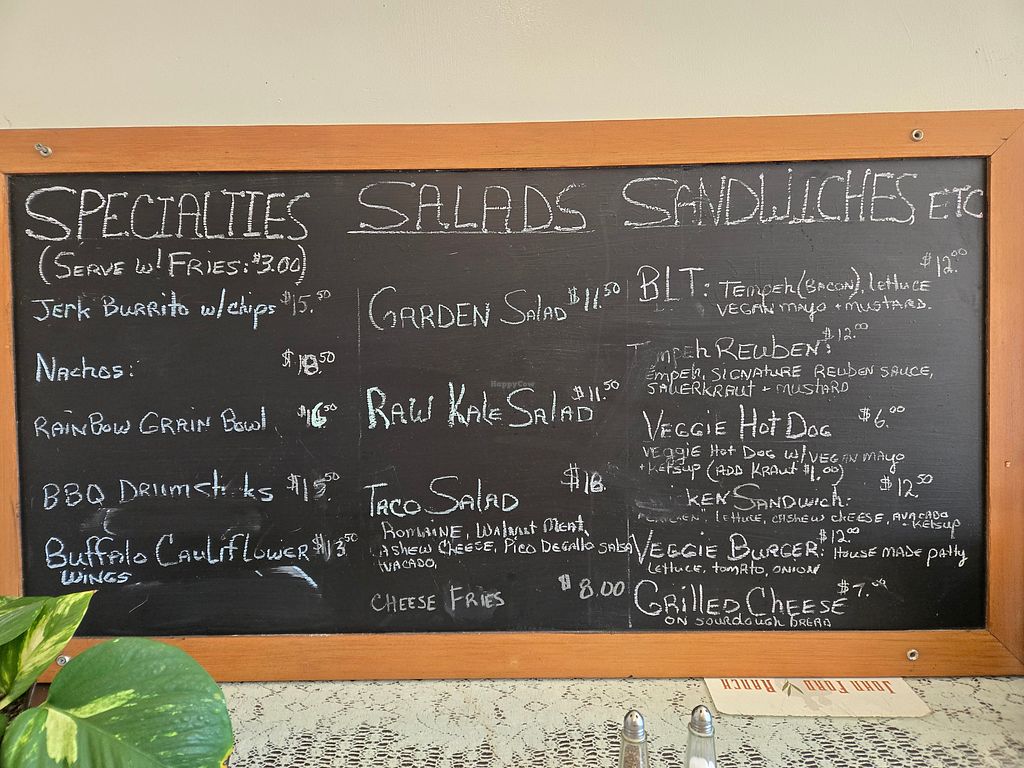 SPECIALTIES
(SERVE W/ FRIES: $3.00)
JERK BURRITO w/chips $15.50
NACHOS: $18.50
RAINBOW GRAIN BOWL $16.50
BBQ DRUMSTICKS $15.50
BUFFALO CAULIFLOWER $13.50
WINGS
SALADS
GARDEN SALAD $11.50
RAW KALE SALAD $11.50
TACO SALAD $18.
ROMAINE, WALNUT MEAT,
CASHEW CHEESE, PICO DEGALLO SALSA
AVACADO,
CHEESE FRIES $8.00
SANDWICHES, ETC
$12.00
BLT: TEMPEH (BACON), LETTUCE
VEGAN MAYO + MUSTARD.
$12.00
TEMPEH REUBEN:
TEMPEH, SIGNATURE REUBEN SAUCE,
SAUERKRAUT + MUSTARD
VEGGIE HOT DOG $6.00
VEGGIE HOT DOG W/ VEGAN MAYO
+ KETSUP (ADD KRAUT $1.00)
KEN SANDWICH: $12.50
LETTUCE, CASHEW CHEESE, AVACADO
+ KETSUP
$12.00
VEGGIE BURGER: HOUSE MADE PATTY
LETTUCE, TOMATO, ONION
GRILLED CHEESE $7.00
ON SOURDOUGH BREAD
HappyCow
JOHN FORD RANCH